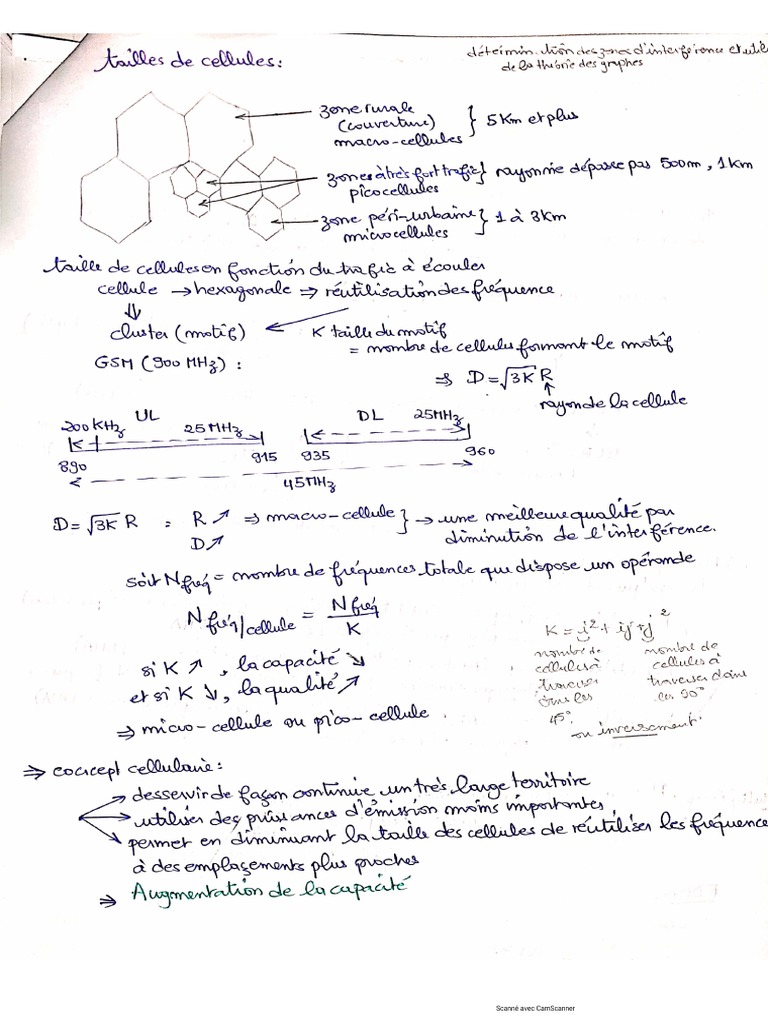 tailles de cellules :
détermin tion des zones d'interférence et utili
de la théorie des graphes
zone rurale
(couverture)
macro-cellules
} 5 Km et plus
zones à très fort trafic
picocellules
} rayon ne dépasse pas 500m, 1 Km
zone péri-urbaine
microcellules
} 1 à 3Km
taille de cellules en fonction du trafic à écouler
cellule → hexagonale ⇒ réutilisation des fréquence
⇓
cluster (motif) ← K taille du motif
= nombre de cellules formant le motif
GSM (900 MHz) :
⇒ D = √3K R
rayon de la cellule
200 KHz UL 25 MHz DL 25MHz
890 915 935 960
45MHz
D = √3K R : R ↗ ⇒ macro-cellule } → une meilleure qualité par
D ↗ diminution de l'interférence.
soit Nfréq = nombre de fréquences totale que dispose un opérande
N fréq/cellule = Nfréq / K
K = i² + ij + j²
si K ↗ , la capacité ↘
et si K ↘, la qualité ↗
⇒ micro-cellule ou pico-cellule
nombre de
cellules à
traverser
dans les
45°
nombre de
cellules à
traverser dans
les 90°
ou inversement.
⇒ concept cellulaire :
desservir de façon continue un très large territoire
utiliser des puissances d'émission moins importantes
permet en diminuant la taille des cellules de réutiliser les fréquence
à des emplacements plus proches
⇒ Augmentation de la capacité
Scanné avec CamScanner